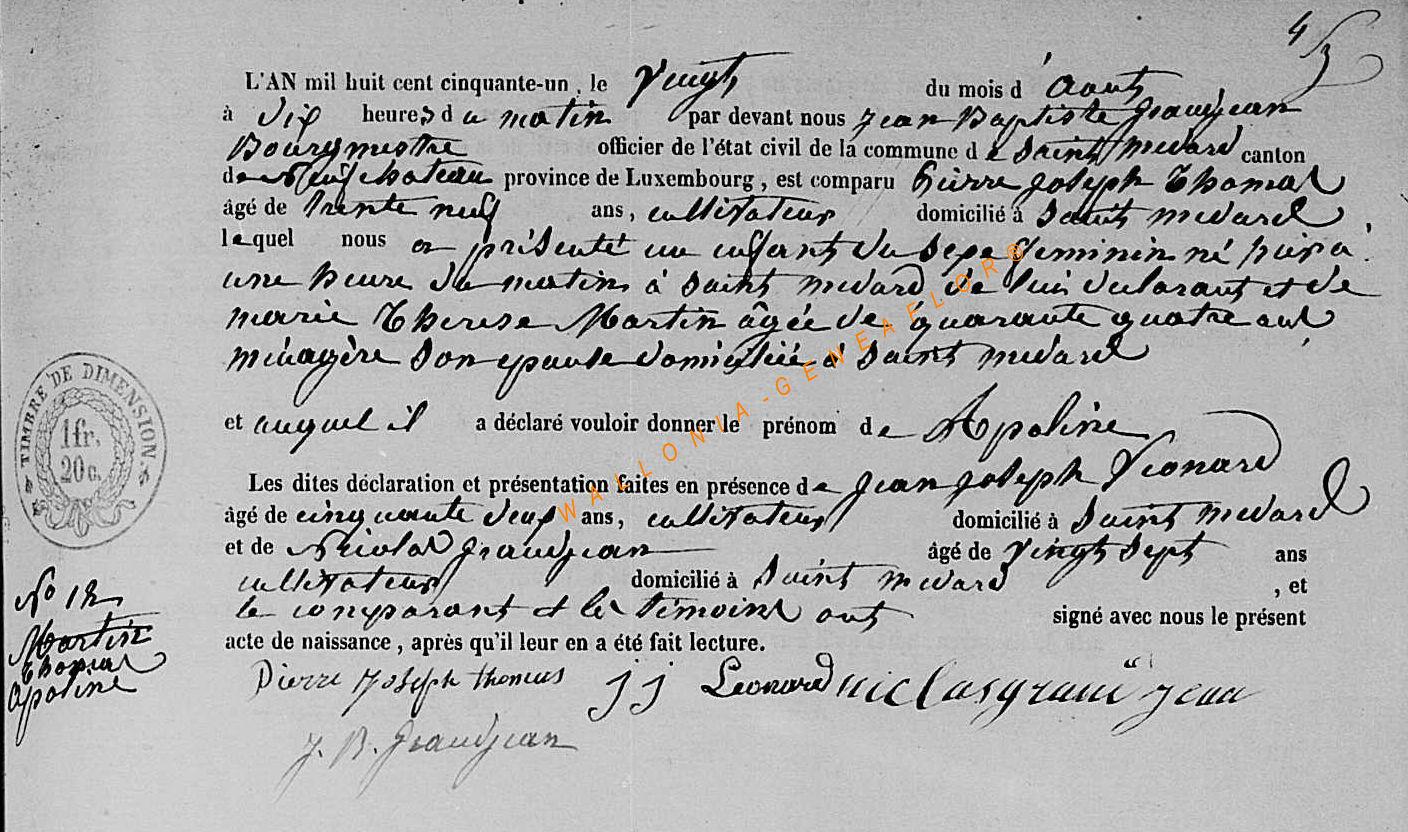 4/3
L'AN mil huit cent cinquante-un, le Vingt du mois d'Aout
à dix heures du matin par devant nous Jean Baptiste Grandjean
Bourgmestre officier de l'état civil de la commune de Saint Medard canton
de Neufchateau province de Luxembourg, est comparu Pierre Joseph Thomas
âgé de trente neuf ans, cultivateur domicilié à Saint Medard
lequel nous a présenté un enfant du sexe feminin né
une heure du matin à Saint Medard de lui declarant et de
marie Therese Martin âgée de quarante quatre ans
ménagère son epouse domiciliée à Saint Medard
et auquel il a déclaré vouloir donner le prénom de Apoline
Les dites déclaration et présentation faites en présence de Jean Joseph Leonard
âgé de cinquante deux ans, cultivateur domicilié à Saint Medard
et de Nicolas Grandjean âgé de Vingt Sept ans
cultivateur domicilié à Saint Medard, et
le comparant et les témoins ont signé avec nous le présent
acte de naissance, après qu'il leur en a été fait lecture.
Pierre Joseph thomas j j Leonard niclas grand jean
J. B. Grandjean
TIMBRE DE DIMENSION
1 fr.
20 c.
No 18
Martin
Thomas
Apoline
WALLONIA-GENEAFLOR®